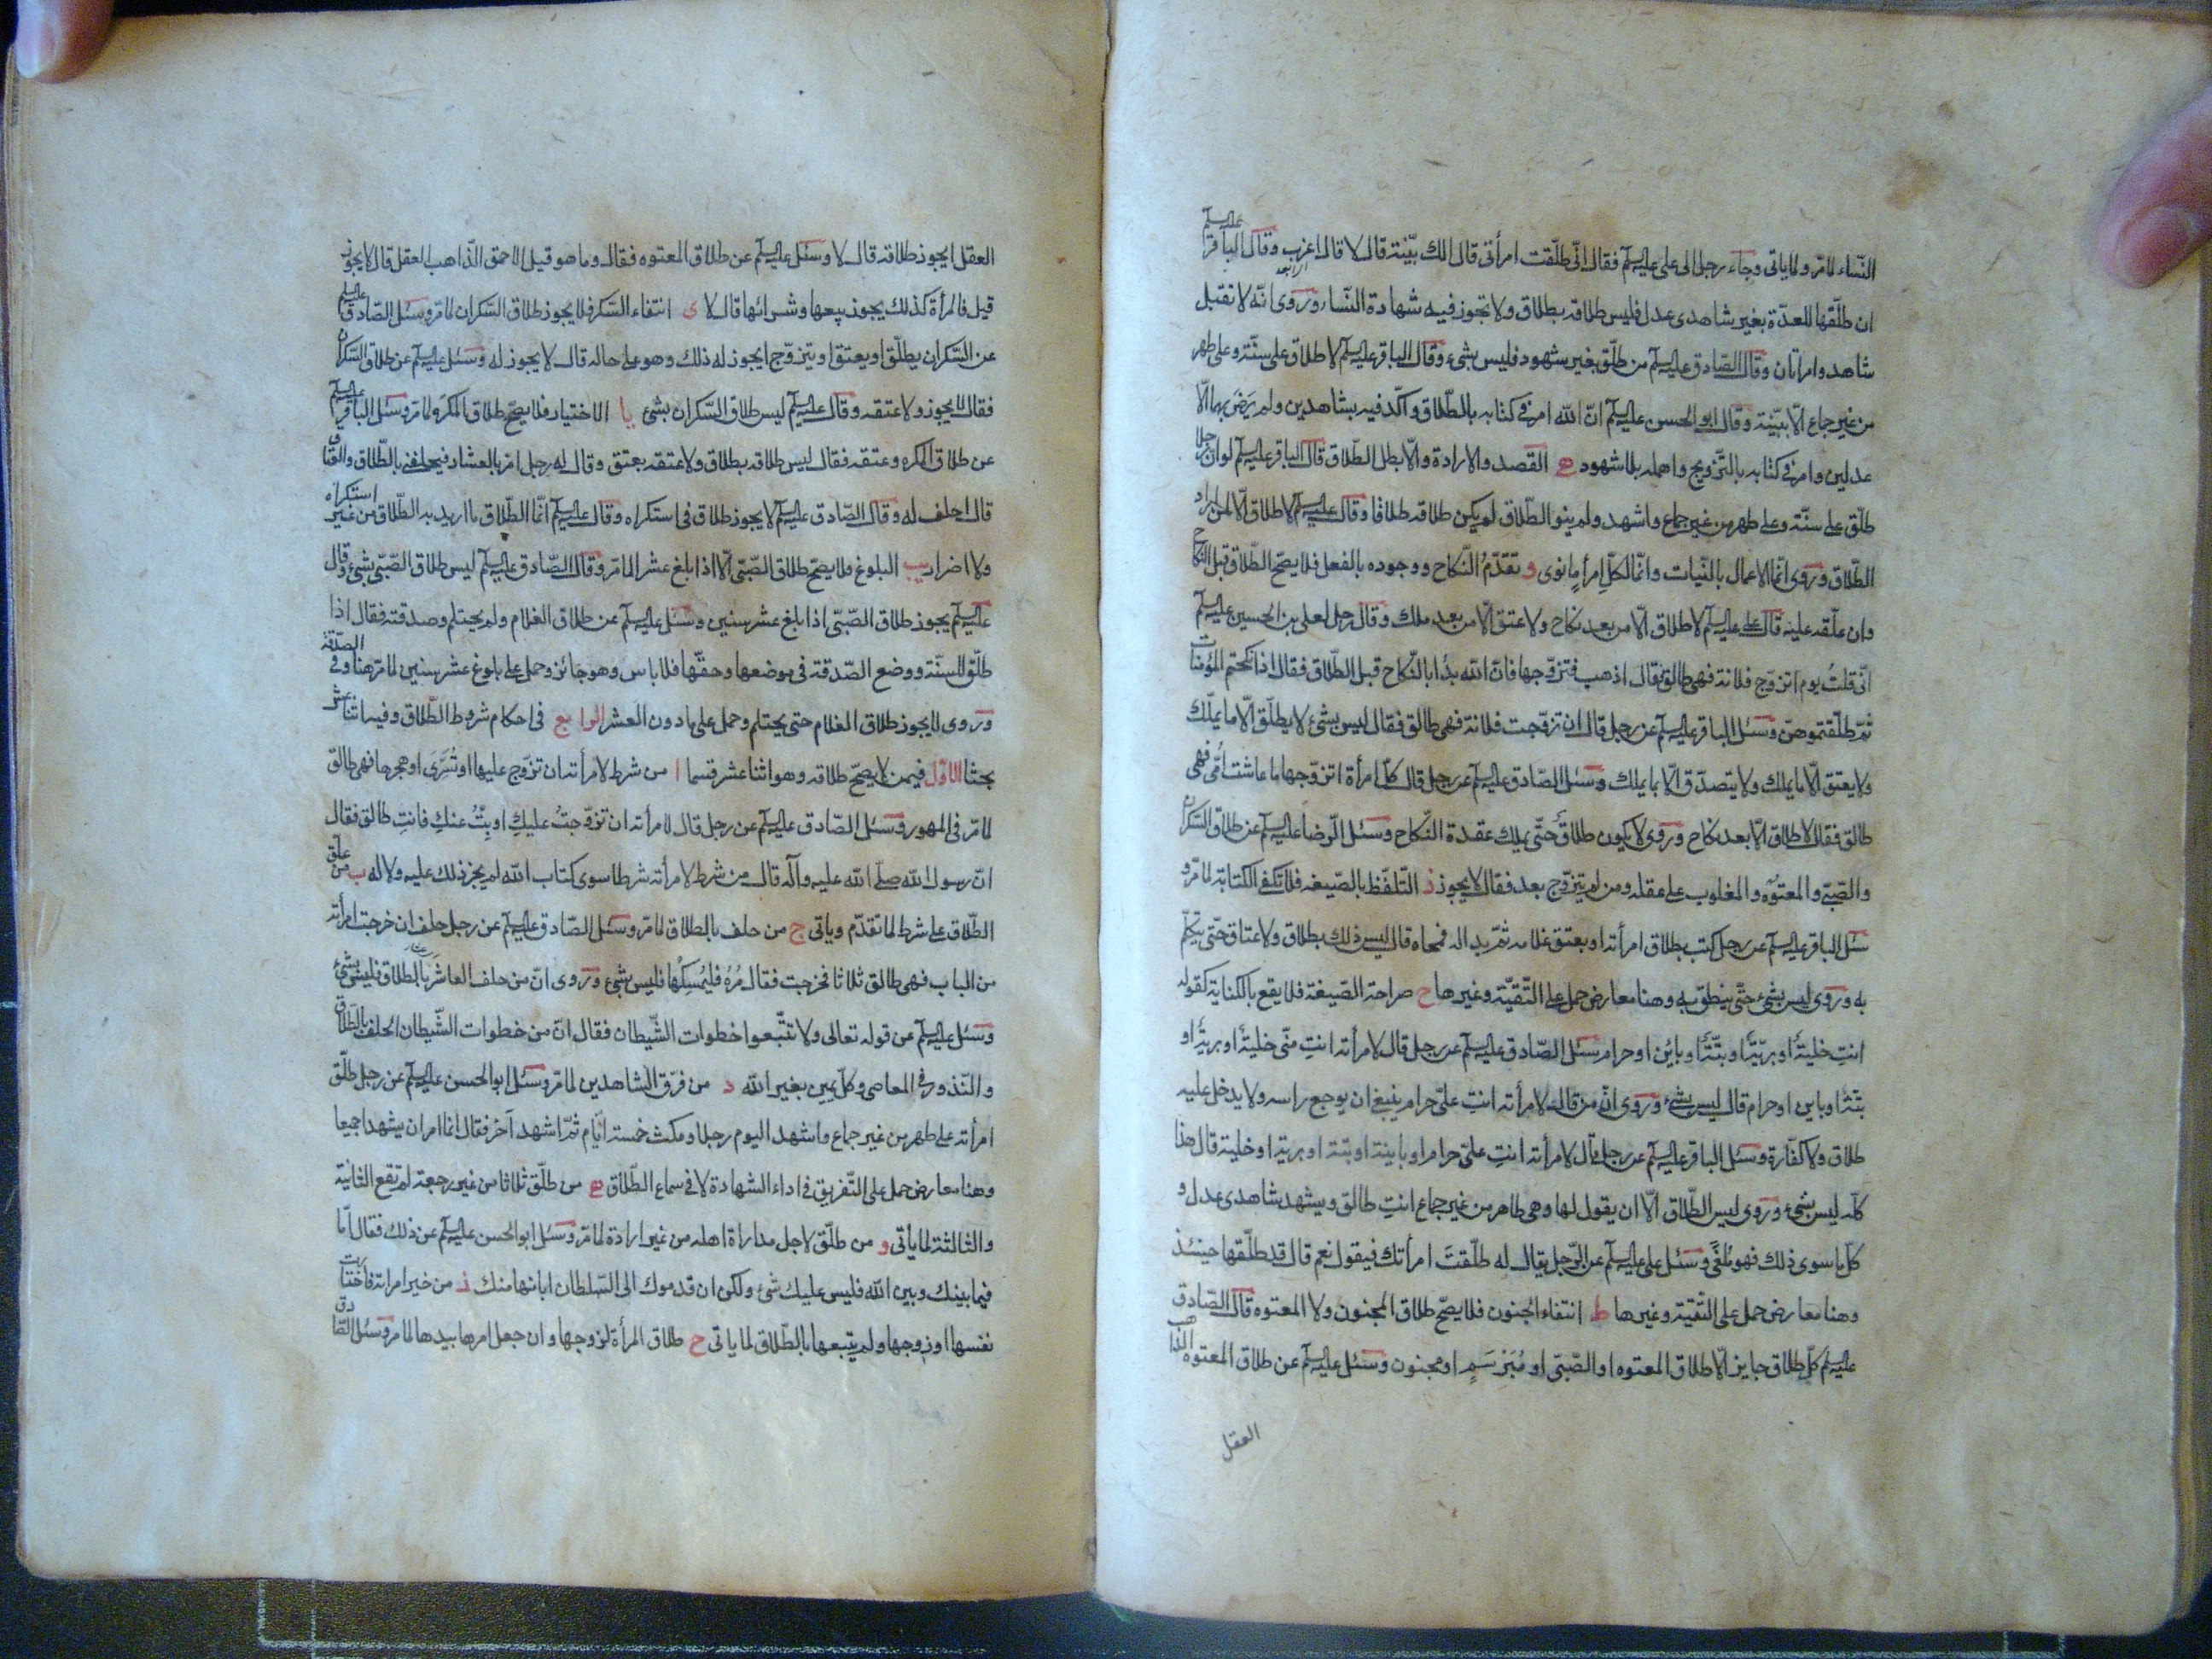 النّساء لما مرّ ولما ياتى وجاء رجل الى على عليه السلم فقال انّى طلّقت امرأتى قال الك بيّنة قال لا قال اعزب وقال الباقر عليه السلم
ان طلّقها للعدّة بغير شاهدى عدل فليس طلاقه بطلاق ولا تجوز فيه شهادة النّساء وروى انّه لا تقبل
شاهد وامرأتان وقال الصّادق عليه السلم من طلّق بغير شهود فليس بشىء وقال الباقر عليه السلم لا طلاق على سنّة وعلى طهر
من غير جماع الّا ببيّنة وقال ابو الحسن عليه السلم انّ الله امر فى كتابه بالطّلاق واكّد فيه بشاهدين ولم يَرضَ بهما الّا
عدلين وامر فى كتابه بالتّزويج واهمله بلا شهود ه القصد والارادة والّا بطل الطّلاق قال الباقر عليه السلم لو ان رجلا
طلّق على سنّة وعلى طهر من غير جماع واشهد ولم ينو الطّلاق لم يكن طلاقه طلاقا وقال عليه السلم لا طلاق الّا لمن اراد
الطّلاق وروى انّما الاعمال بالنّيات وانّما لكلّ امرأ ما نوى و تقدّم النّكاح ووجوده بالفعل فلا يصحّ الطّلاق قبل النّكاح
وان علّقه عليه قال على عليه السلم لا طلاق الّا من بعد نكاح ولا عتق الّا من بعد ملك وقال رجل لعلى بن الحسين عليه السلم
انّى قلتُ يوم اتزوّج فلانة فهى طالق فقال اذهب فتزوّجها فانّ الله بدأ بالنّكاح قبل الطّلاق فقال اذا نكحتم المؤمنات
ثمّ طلّقتموهنّ وسئل الباقر عليه السلم عن رجل قال ان تزوّجت فلانة فهى طالق فقال ليس بشىء لا يطلّق الّا ما يملك
ولا يعتق الّا ما يملك ولا يتصدّق الّا بما يملك وسئل الصّادق عليه السلم عن رجل قال كلّ امرأة اتزوّجها ما عاشت امّى فهى
طالق فقال لا طلاق الّا بعد نكاح وروى لا يكون طلاقٌ حتّى يملك عقدة النّكاح وسئل الرّضا عليه السلم عن طلاق السّكران
والصّبّى والمعتوه والمغلوب على عقله ومن لم يتزوّج بعد فقال لا يجوز ز التّلفّظ بالصّيغة فلا تكفى الكتابة لما مرّ و
سئل الباقر عليه السلم عن رجل كتب بطلاق امرأته او بعتق غلامه ثمّ بدا له فمحاه قال ليس ذلك بطلاق ولا عتاق حتّى يتكلّم
به وروى ليس بشىء حتّى ينطق به وهنا معارض حمل على التّقيّة وغيرها ح صراحة الصّيغة فلا يقع بالكناية كقوله
انتِ خليّة او بريّة او بتّة او باين او حرام سئل الصّادق عليه السلم عن رجل قال لامرأته انتِ منّى خليّة او بريّة او
بتّة او باين او حرام قال ليس بشىء وروى انّ من قال لامرأته انتِ علىّ حرام ينبغى ان يوجع راسه ولا يدخل عليه
طلاق ولا كفّارة وسئل الباقر عليه السلم عن رجل قال لامرأته انتِ علىّ حرام او باينة او بتة او برية او خلية قال هذا
كلّه ليس بشىء وروى ليس الطّلاق الّا ان يقول لها وهى طاهر من غير جماع انتِ طالق ويشهد شاهدى عدل و
كلّ ما سوى ذلك فهو مُلغًى وسئل على عليه السلم عن الرّجل يقال له طلّقتَ امرأتك فيقول نعم قال قد طلّقها حينئذ
وهنا معارض حمل على التّقيّة وغيرها ط انتفاء الجنون فلا يصحّ طلاق المجنون ولا المعتوه قال الصّادق
عليه السلم كلّ طلاق جايز الّا طلاق المعتوه او الصّبّى او مُبَرسَم او مجنون وسئل عليه السلم عن طلاق المعتوه الذّاهب
العقل
العقل ايجوز طلاقه قال لا وسئل عليه السلم عن طلاق المعتوه فقال وما هو قيل الاحمق الذّاهب العقل قال لا يجوز
قيل فالمرأة كذلك يجوز بيعها وشرائها قال لا ى انتفاء السّكر فلا يجوز طلاق السّكران لما مرّ وسئل الصّادق عليه السلم
عن السّكران يطلّق او يعتق او يتزوّج ايجوز له ذلك وهو على حاله قال لا يجوز له وسئل عليه السلم عن طلاق السّكران
فقال لا يجوز ولا عتقه وقال عليه السلم ليس طلاق السّكران بشىء يا الاختيار فلا يصحّ طلاق المكره لما مرّ وسئل الباقر عليه السلم
عن طلاق المكره وعتقه فقال ليس طلاقه بطلاق ولا عتقه بعتق وقال له رجل امرّ بالعشار فيحلفنى بالطّلاق والعتاق
قال احلف له وقال الصّادق عليه السلم لا يجوز طلاق فى استكراه وقال عليه السلم انّما الطّلاق ما اريد به الطّلاق من غير استكراه
ولا اضرار يب البلوغ فلا يصحّ طلاق الصّبّى الّا اذا بلغ عشرا لما مرّ وقال الصّادق عليه السلم ليس طلاق الصّبّى بشىء وقال
عليه السلم يجوز طلاق الصّبّى اذا بلغ عشر سنين وسئل عليه السلم عن طلاق الغلام ولم يحتلم وصدقته فقال اذا
طلّق للسنّة ووضع الصّدقة فى موضعها وحقّها فلا باس وهو جائز وحمل على بلوغ عشر سنين لما مرّ هنا وفى الصّدقة
وروى لا يجوز طلاق الغلام حتى يحتلم وحمل على ما دون العشر الرابع فى احكام شروط الطّلاق وفيه اثنا عشر
بحثا الاوّل فيمن لا يصحّ طلاقه وهو اثنا عشر قسما ا من شرط لامرأته ان تزوّج عليها او تسرّى او هجرها فهى طالق
لما مرّ فى المهور وسئل الصّادق عليه السلم عن رجل قال لامرأته ان تزوّجتُ عليكِ او بِتُّ عنكِ فانتِ طالق فقال
انّ رسول الله صلّى الله عليه وآله قال من شرط لامرأته شرطا سوى كتاب الله لم يجز ذلك عليه ولا له ب من علّق
الطّلاق على شرط لما تقدّم وياتى ج من حلف بالطلاق لما مرّ وسئل الصّادق عليه السلم عن رجل حلف ان خرجت امرأته
من الباب فهى طالق ثلاثا فخرجت فقال مُرهُ فليُمسِكها فليس بشىء وروى انّ من حلف العاشر بالطلاق فليس بشىء
وسئل عليه السلم عن قوله تعالى ولا تتّبعوا خطوات الشّيطان فقال انّ من خطوات الشّيطان الحلف بالطّلاق
والنّذور فى المعاصى وكلّ يمين بغير الله د من فرّق الشاهدين لما مرّ وسئل ابو الحسن عليه السلم عن رجل طلّق
امرأته على طهر من غير جماع واشهد اليوم رجلا ومكث خمسة ايّام ثمّ اشهد آخر فقال انما امر ان يشهدا جميعا
وهنا معارض حمل على التّفريق فى اداء الشهادة لا فى سماع الطّلاق ه من طلّق ثلاثا من غير رجعة لم تقع الثانية
والثالثة لما يأتى و من طلّق لاجل مداراة اهله من غير ارادة لما مرّ وسئل ابو الحسن عليه السلم عن ذلك فقال امّا
فيما بينك وبين الله فليس عليك شىء ولكن ان قدموك الى السّلطان ابانها منك ز من خير امراته فاختارت
نفسها او زوجها ولم يتبعها بالطّلاق لما ياتى ح طلاق المرأة لزوجها وان جعل امرها بيدها لما مرّ وسئل الصّادق